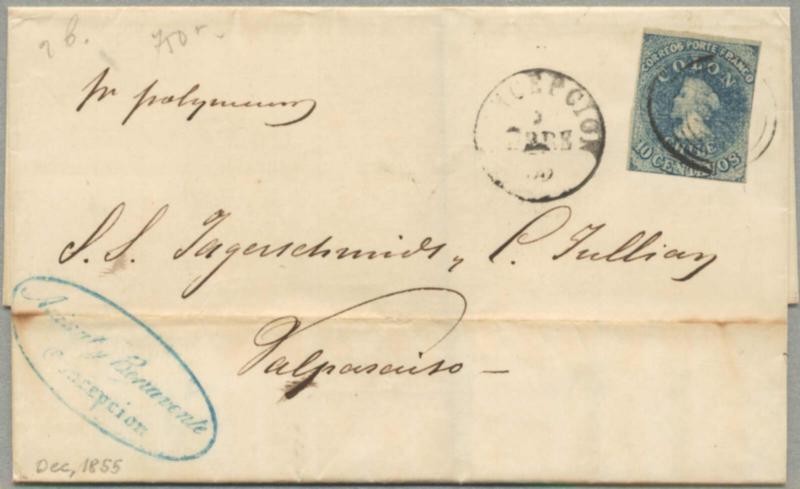 2 b. 750
pr polynesien
CORREOS PORTE FRANCO
COLON
CHILE
10 CENTAVOS
NCEPCION
S. S. Jagerschmidt y C. Jullian
Valparaiso —
y Benavente
Concepcion
Dec, 1855